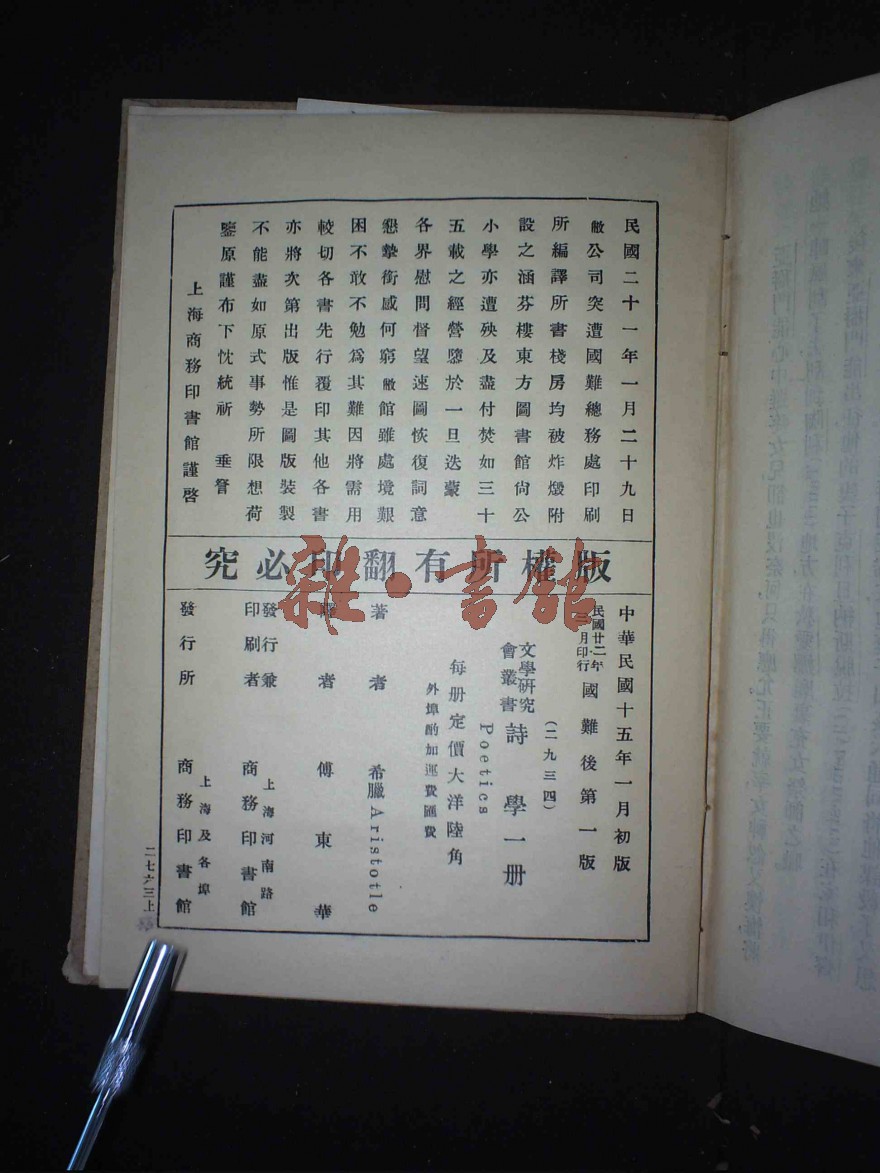 民國二十一年一月二十九日
敝公司突遭國難總務處印刷
所編譯所書棧房均被炸燬附
設之涵芬樓東方圖書館尙公
小學亦遭殃及盡付焚如三十
五載之經營隳於一旦迭蒙
各界慰問督望速圖恢復詞意
懇摯銜感何窮敝館雖處境艱
困不敢不勉爲其難因將需用
較切各書先行覆印其他各書
亦將次第出版惟是圖版裝製
不能盡如原式事勢所限想荷
鑒原謹布下忱統祈 垂詧
上海商務印書館謹啓
究必印翻有所權版
雜·書館
中華民國十五年一月初版
民國廿二年
三月印行
國難後第一版
(二九三四)
文學研究
會叢書
詩學一册
Poetics
每册定價大洋陸角
外埠酌加運費匯費
著者 希臘 Aristotle
譯者 傅東華
發行兼
印刷者
上海河南路
商務印書館
發行所
上海及各埠
商務印書館
二七六三上